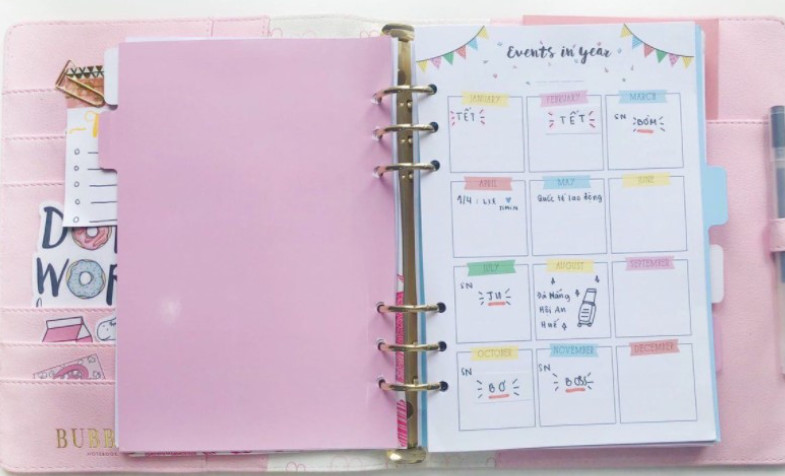 Events in Year
JANUARY
TẾT
FEBRUARY
TẾT
MARCH
SN
BỐM
APRIL
MAY
Quốc tế lao động
JUNE
JULY
SN
JU
AUGUST
Đà Nẵng
Hội An
Huế
SEPTEMBER
OCTOBER
SN
BƠ
NOVEMBER
SN
BOSS
DECEMBER
WOR
BUBB